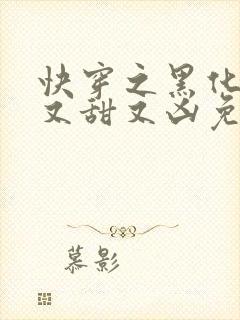 快穿之黑化
又甜又凶免
慕影